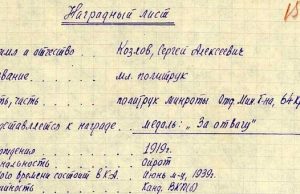 Наградный лист
15
имя и отчество Козлов, Сергей Алексеевич
звание мл. политрук
ть, часть политрук минроты Отд. Мин б-на, 64
оставляется к награде медаль: „За отвагу"
рождения 1919г.
нальность Ойрот
ого времени состоит в К.А. Июнь м-ц, 1939г.
ийность Канд. ВКП(б)